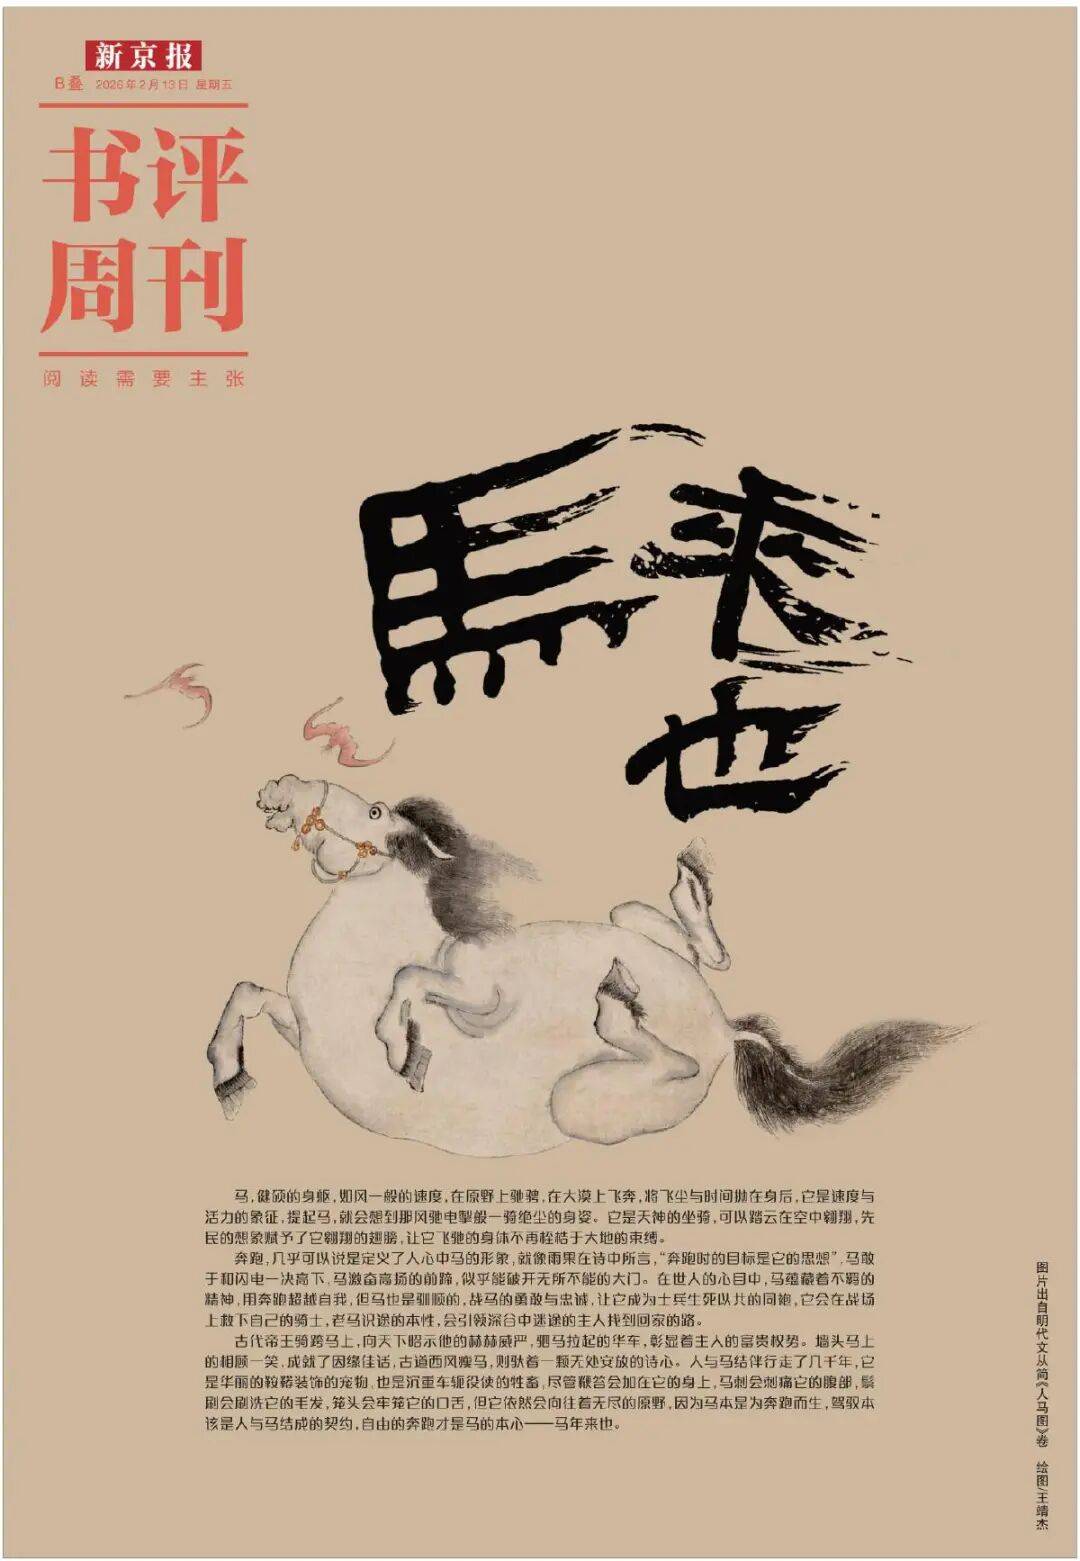 新京报
B叠 2026年2月13日 星期五
书评
周刊
阅读需要主张
馬来
也
马，健硕的身躯，如风一般的速度，在原野上驰骋，在大漠上飞奔，将飞尘与时间抛在身后，它是速度与
活力的象征，提起马，就会想到那风驰电掣般一骑绝尘的身姿。它是天神的坐骑，可以踏云在空中翱翔，先
民的想象赋予了它翱翔的翅膀，让它飞驰的身体不再桎梏于大地的束缚。
奔跑，几乎可以说是定义了人心中马的形象，就像雨果在诗中所言，“奔跑时的目标是它的思想”，马敢
于和闪电一决高下，马激奋高扬的前蹄，似乎能破开无所不能的大门。在世人的心目中，马蕴藏着不羁的
精神，用奔跑超越自我，但马也是驯顺的，战马的勇敢与忠诚，让它成为士兵生死以共的同袍，它会在战场
上救下自己的骑士，老马识途的本性，会引领深谷中迷途的主人找到回家的路。
古代帝王骑跨马上，向天下昭示他的赫赫威严，驷马拉起的华车，彰显着主人的富贵权势。墙头马上
的相顾一笑，成就了因缘佳话，古道西风瘦马，则驮着一颗无处安放的诗心。人与马结伴行走了几千年，它
是华丽的鞍鞯装饰的宠物，也是沉重车轭役使的牲畜，尽管鞭笞会加在它的身上，马刺会刺痛它的腹部，鬃
刷会刷洗它的毛发，笼头会牢笼它的口舌，但它依然会向往着无尽的原野，因为马本是为奔跑而生，驾驭本
该是人与马结成的契约，自由的奔跑才是马的本心——马年来也。
图片出自明代文从简《人马图》卷 绘图/王靖杰